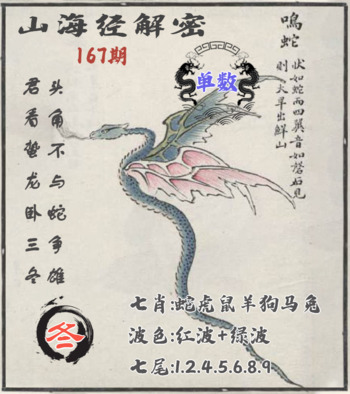 山海经解密
167期
鳴蛇
状如蛇而四翼音如磬石見
則大旱出鮮山
单数
君看蛰龙卧三冬
头角不与蛇争雄
冬
七肖:蛇虎鼠羊狗马兔
波色:红波+绿波
七尾:1.2.4.5.6.8.9